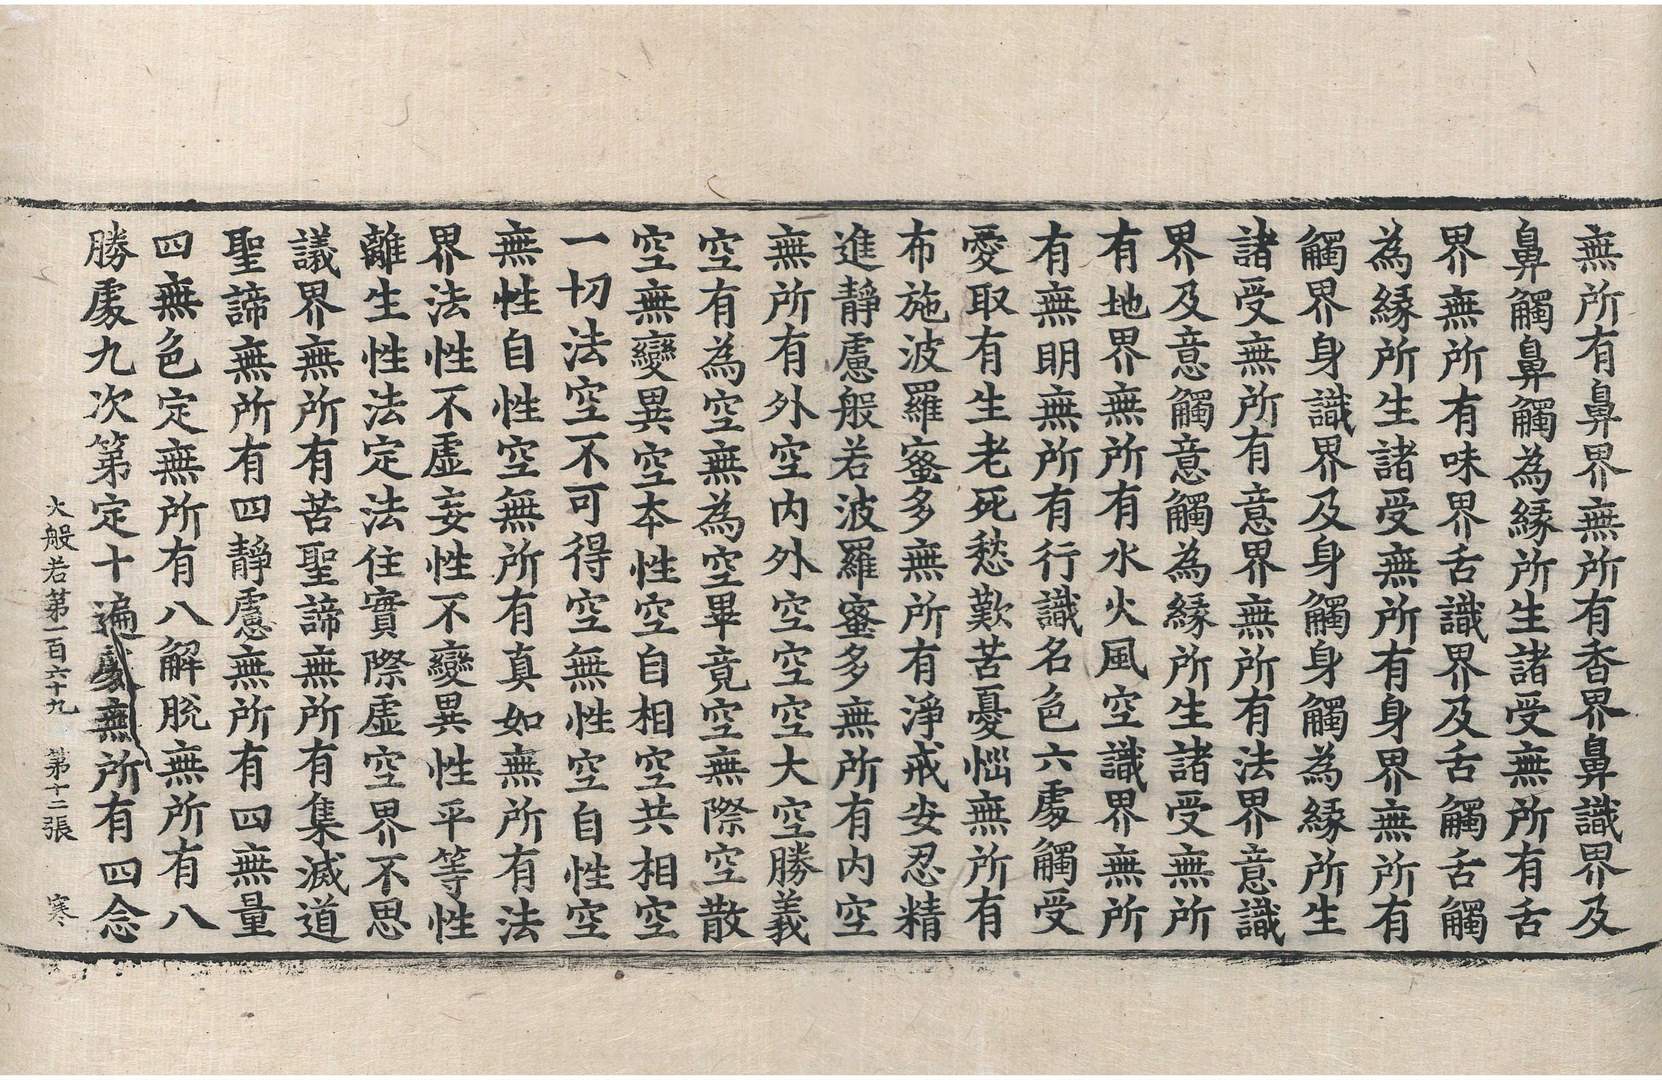 無所有鼻界無所有香界鼻識界及
鼻觸鼻觸為緣所生諸受無所有舌
界無所有味界舌識界及舌觸舌觸
為緣所生諸受無所有身界無所有
觸界身識界及身觸身觸為緣所生
諸受無所有意界無所有法界意識
界及意觸意觸為緣所生諸受無所
有地界無所有水火風空識界無所
有無明無所有行識名色六處觸受
愛取有生老死愁歎苦憂惱無所有
布施波羅蜜多無所有淨戒安忍精
進靜慮般若波羅蜜多無所有内空
無所有外空内外空空空大空勝義
空有為空無為空畢竟空無際空散
空無變異空本性空自相空共相空
一切法空不可得空無性空自性空
無性自性空無所有真如無所有法
界法性不虛妄性不變異性平等性
離生性法定法住實際虛空界不思
議界無所有苦聖諦無所有集滅道
聖諦無所有四靜慮無所有四無量
四無色定無所有八解脫無所有八
勝處九次第定十遍處無所有四念
大般若第一百六十九 第十二張 寒